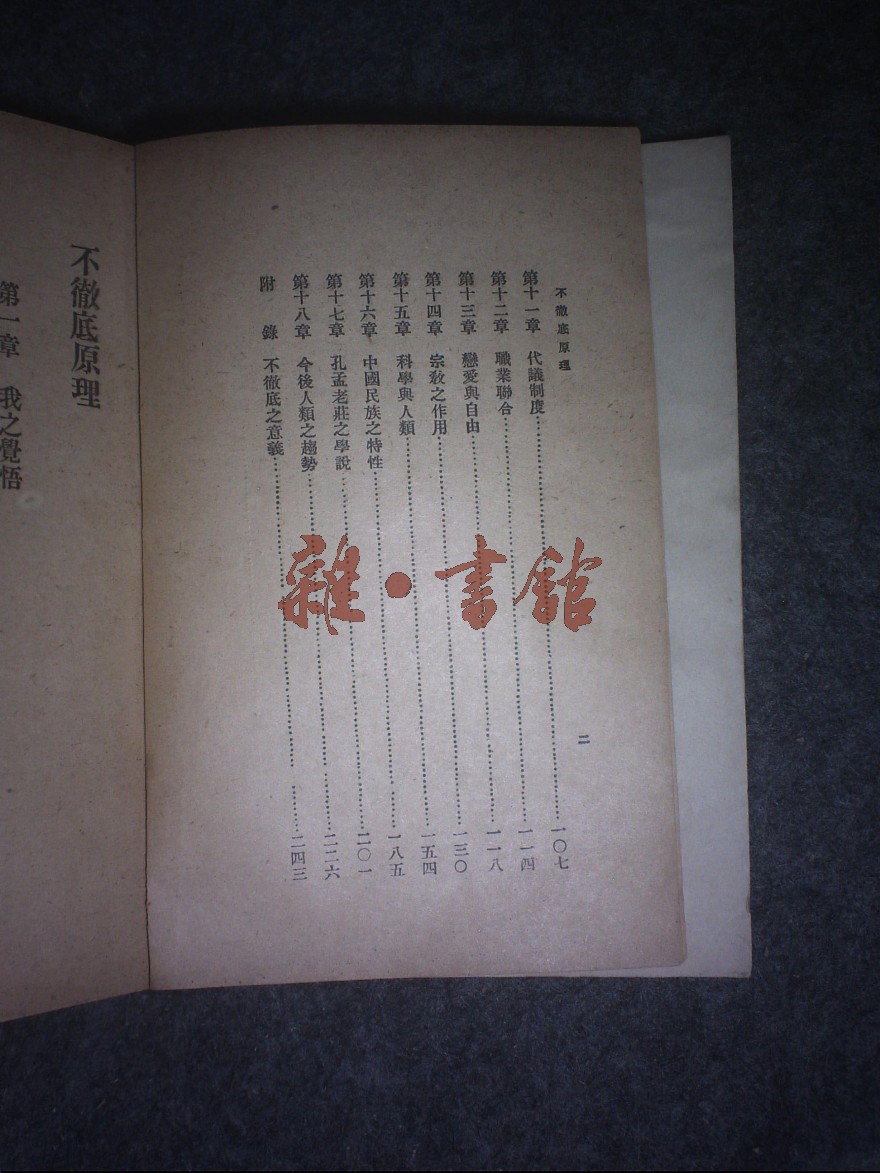 不徹底原理 二
第十一章 代議制度……一〇七
第十二章 職業聯合……一一四
第十三章 戀愛與自由……一一八
第十四章 宗教之作用……一三〇
第十五章 科學與人類……一五四
第十六章 中國民族之特性……一八五
第十七章 孔孟老莊之學說……二〇一
第十八章 今後人類之趨勢……二二六
附錄 不徹底之意義……二四三
不徹底原理
第一章 我之覺悟
雜·書館